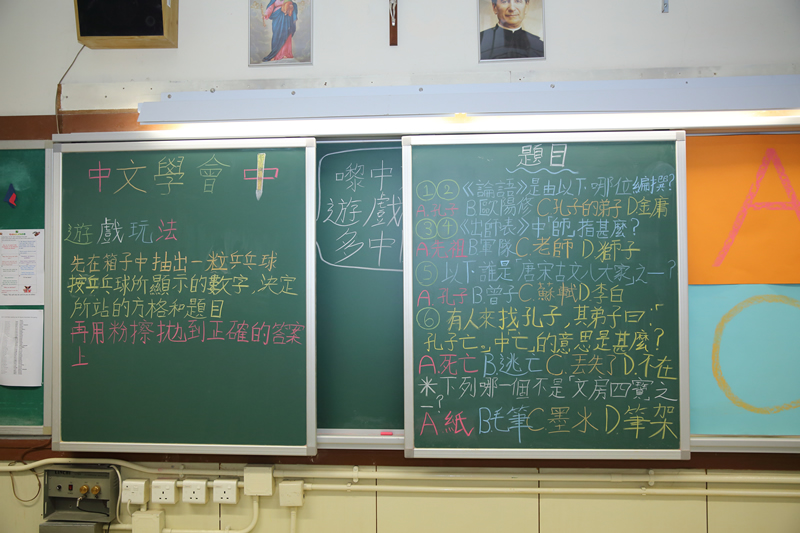 中文學會 中
遊戲玩法
先在箱子中抽出一粒乒乓球
按乒乓球所顯示的數字,決定
所站的方格和題目
再用粉擦拋到正確的答案
上
嚟中
遊戲
多中
題目
①②《論語》是由以下哪位編撰?
A.孔子 B歐陽修 C.孔子的弟子 D金庸
③④《出師表》中「師」指甚麼?
A.先祖 B軍隊 C.老師 D.獅子
⑤以下誰是唐宋古文八大家之一?
A.孔子 B曾子 C.蘇軾 D李白
⑥有人來找孔子,其弟子曰:「
孔子亡」,中「亡」的意思是甚麼?
A.死亡 B逃亡 C.丟失了 D.不在
*下列哪一個不是「文房四寶」之
一?
A紙 B毛筆 C墨水 D筆架
A
C